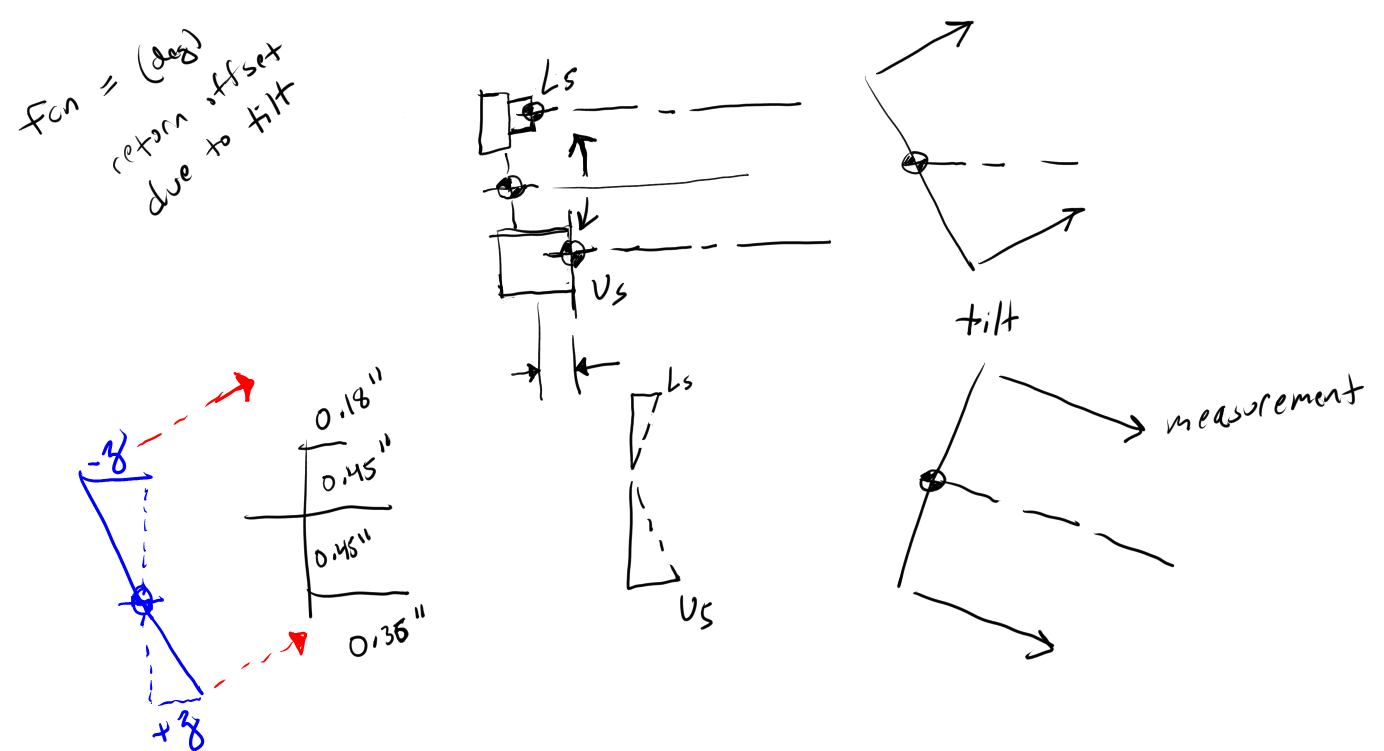 fcn = (deg)
return offset
due to tilt
Ls
Us
tilt
measurement
-z
+z
0.18"
0.45"
0.45"
0.35"
Ls
Us